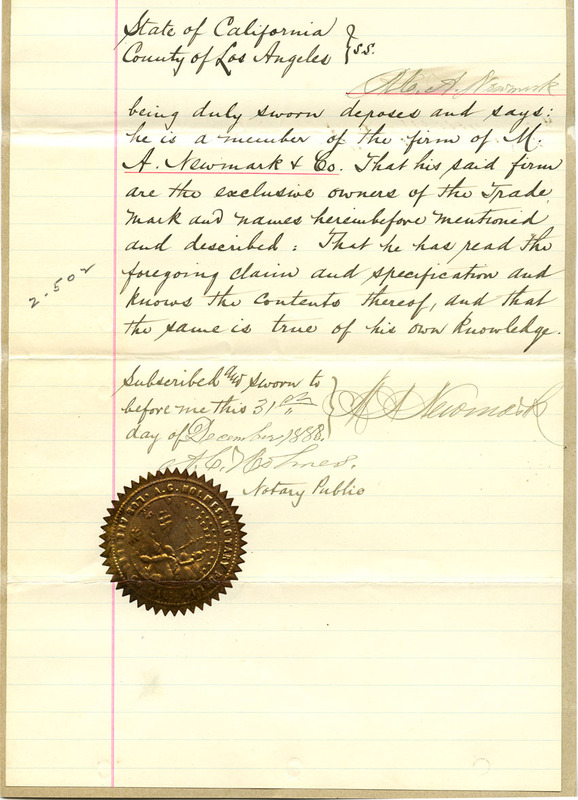 State of California
County of Los Angeles } ss.
A. Newmark
being duly sworn deposes and says:
he is a member of the firm of M.
A. Newmark & Co. That his said firm
are the exclusive owners of the Trade
Mark and names hereinbefore mentioned
and described: That he has read the
foregoing claim and specification and
knows the contents thereof, and that
the same is true of his own knowledge.
2.502
Subscribed and sworn to
before me this 31st
day of December 1888.
} M A Newmark
A.C. Holmes.
Notary Public
A.C. HOLMES, NOTARY